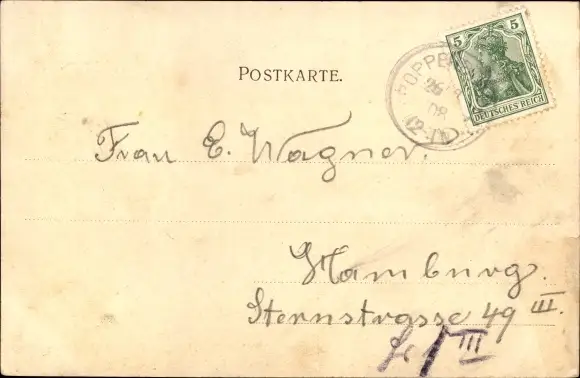 POSTKARTE.
5 5
DEUTSCHES REICH
26
08
12-1N
Frau E. Wagner.
Hamburg.
Sternstrasse 49 III.
III